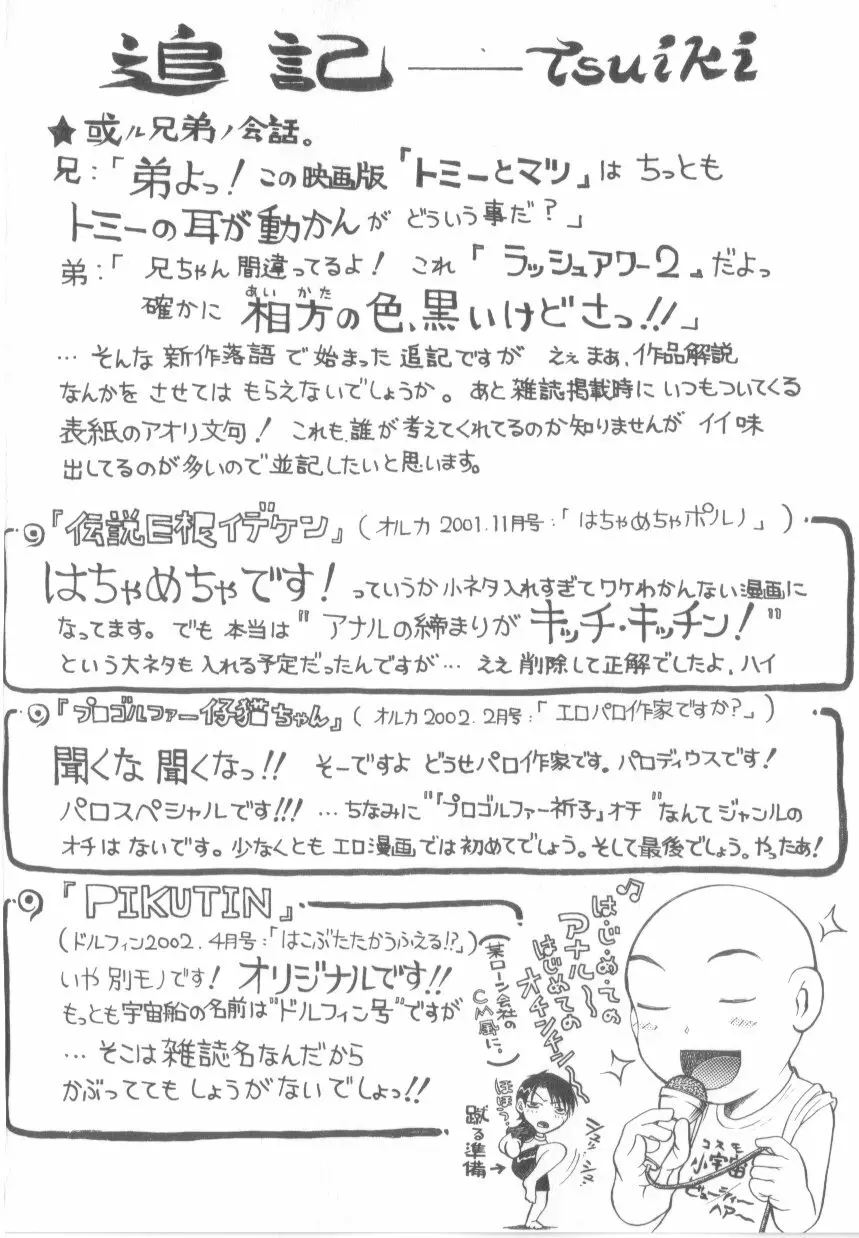 追記 — tsuiki
★或ル兄弟ノ会話。
兄:「弟よっ!この映画版『トミーとマツ』は ちっとも
トミーの耳が動かんが どういう事だ?」
弟:「兄ちゃん間違ってるよ! これ『ラッシュアワー2』だよっ
あい かた
確かに 相方の色、黒いけどさっ!!」
…そんな 新作落語 で始まった 追記ですが ええ まぁ、作品解説
なんかを させては もらえないでしょうか。あと 雑誌掲載時に いつもついてくる
表紙のアオリ文句! これも、誰が考えてくれてるのか知りませんが イイ味
出してるのが多いので 並記したいと思います。
『伝説巨根イデケン』(オルカ 2001.11月号:「はちゃめちゃポルノ」)
はちゃめちゃです! っていうか 小ネタ入れすぎて ワケわかんない 漫画に
なってます。でも 本当は "アナルの締まりが キッチ・キッチン!"
という大ネタも 入れる予定だったんですが… ええ 削除して正解でしたよ、ハイ
『プロゴルファー仔猫ちゃん』(オルカ2002.2月号:「エロパロ作家ですか?」)
聞くな 聞くなっ!! そーですよ どうせパロ作家です。パロディウスです!
パロスペシャルです!!! …ちなみに"『プロゴルファー祈子』オチ"なんてジャンルの
オチは ないです。少なくとも エロ漫画 では 初めてでしょう。そして最後でしょう。やったあ!
『PIKUTIN』
(ドルフィン2002.4月号:「はこぶたたかうふえる!?」)
いや 別モノです! オリジナルです!!
もっとも宇宙船の名前は"ドルフィン号"ですが
…そこは 雑誌名なんだから
かぶってても しょうがないでしょっ!!
♪は・じ・め・ての
アナル〜
はじめての
オチンチン〜
(某ローン会社の
CM風に。)
蹴る準備→
コスモ
小宇宙
ビューティー
ヘアー